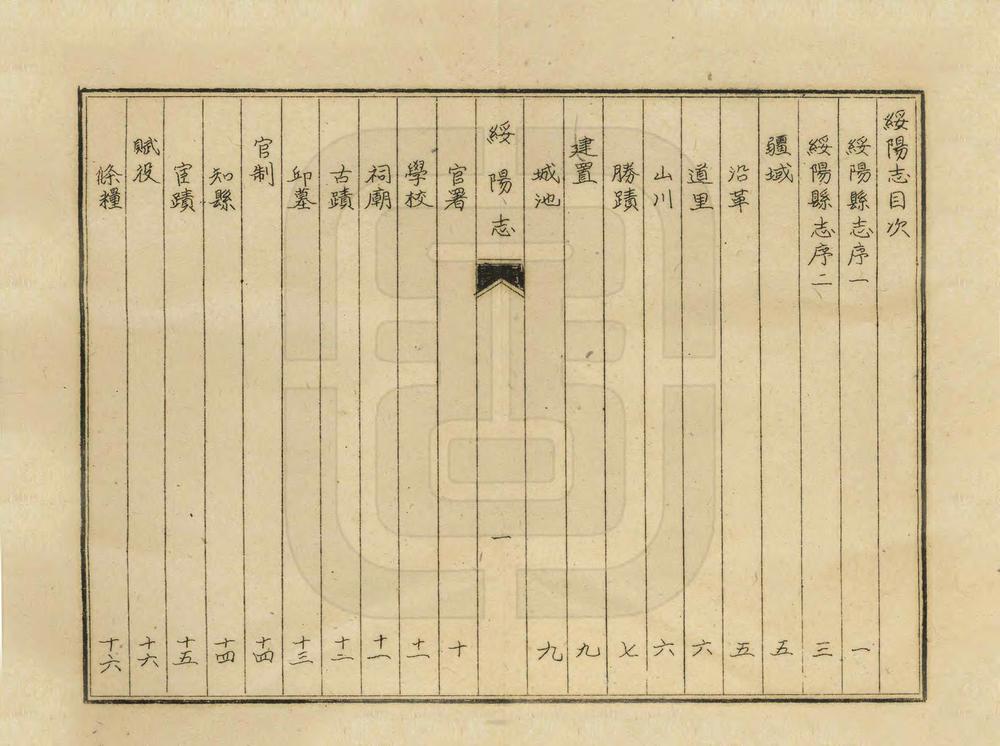 綏陽志目次
綏陽縣志序一 一
綏陽縣志序二 三
疆域 五
沿革 五
道里 六
山川 六
勝蹟 七
建置 九
城池 九
綏陽志 一
官署 十
學校 十一
祠廟 十一
古蹟 十二
邱墓 十三
官制 十四
知縣 十四
宦蹟 十五
賦役 十六
條糧 十六